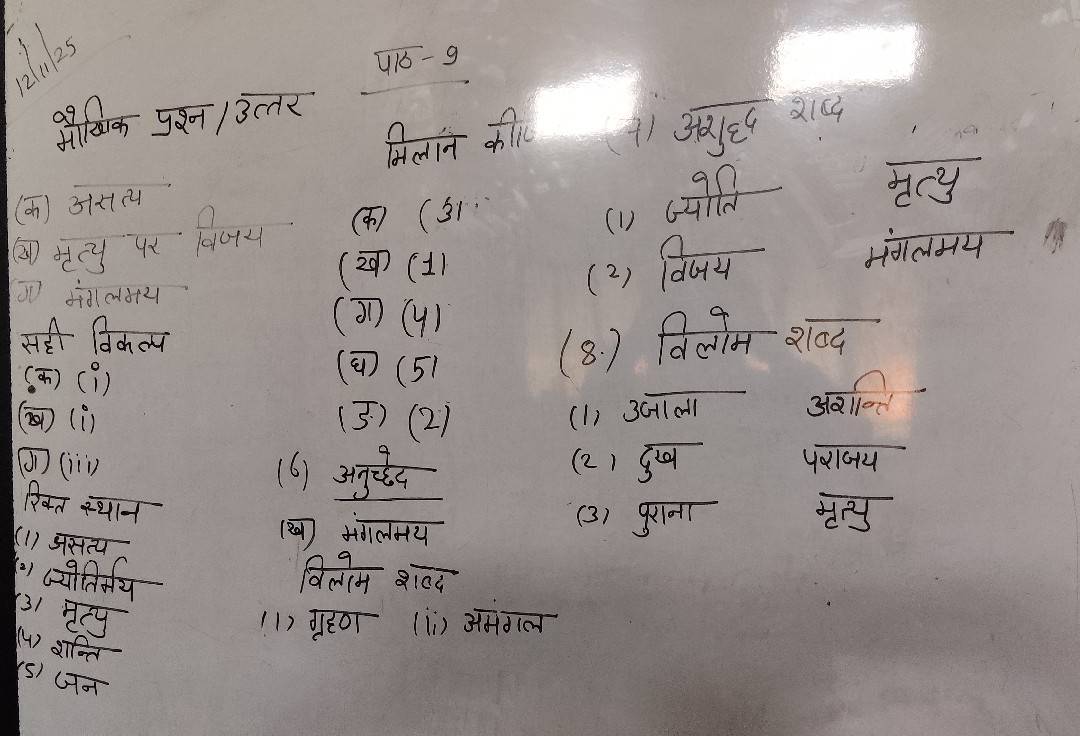 12/11/25
पाठ - 9
मौखिक प्रश्न / उत्तर
(क) असत्य
(ख) मृत्यु पर विजय
(ग) मंगलमय
सही विकल्प
(क) (i)
(ख) (i)
(ग) (iii)
रिक्त स्थान
(1) असत्य
(2) ज्योतिर्मय
(3) मृत्यु
(4) शन्ति
(5) जन
मिलान
(क) (3)
(ख) (1)
(ग) (4)
(घ) (5)
(ङ) (2)
(6) अनुच्छेद
(ख) मंगलमय
विलोम शब्द
(1) गृहण (ii) अमंगल
अशुद्द शब्द
(1) ज्योति मृत्यु
(2) विजय मंगलमय
(8.) विलोम शब्द
(1) उजाला अशन्ति
(2) दुख पराजय
(3) पुराना मृत्यु